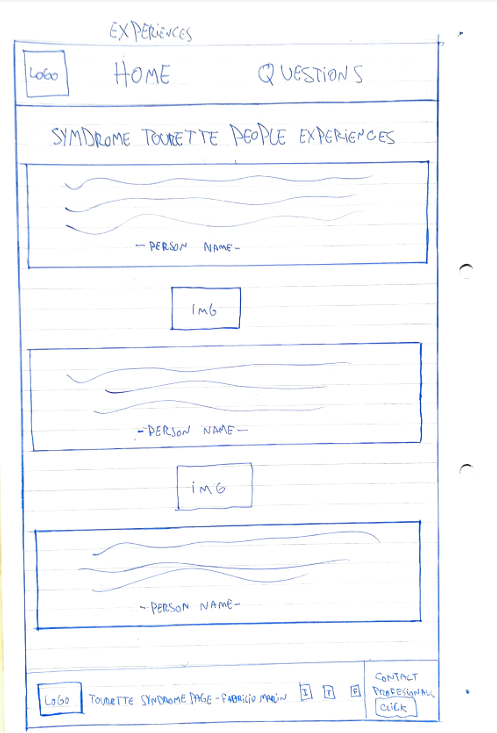 EXPERiENCES
LOGO HOME QUESTIONS
SYMDROME TOURETTE PEOPLE EXPERiENCES
-PERSON NAME-
IMG
-PERSON NAME-
iMG
-PERSON NAME-
CONTACT
LOGO TOURETTE SYNDROME PAGE-FABRICIO MARIN I T F PROFESIONAL
CLICK